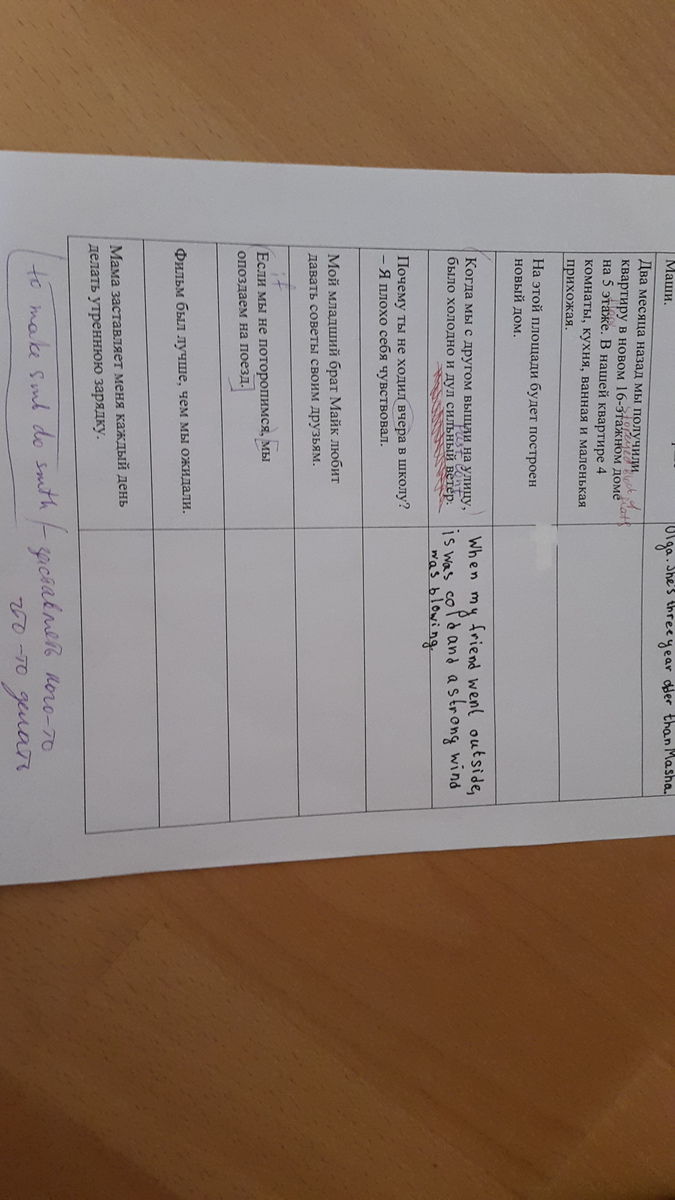 Маши.
Olga. She's three year older than Masha.
Два месяца назад мы получили
квартиру в новом 16-этажном доме
на 5 этаже. В нашей квартире 4
комнаты, кухня, ванная и маленькая
прихожая.
На этой площади будет построен
новый дом.
Когда мы с другом вышли на улицу,
было холодно и дул сильный ветер.
When my friend went outside,
is was cold and a strong wind
was blowing.
Почему ты не ходил вчера в школу?
– Я плохо себя чувствовал.
Мой младший брат Майк любит
давать советы своим друзьям.
Если мы не поторопимся, мы
if
опоздаем на поезд.
Фильм был лучше, чем мы ожидали.
Мама заставляет меня каждый день
делать утреннюю зарядку.
to make smb do smth / – заставлять кого-то
что-то делать